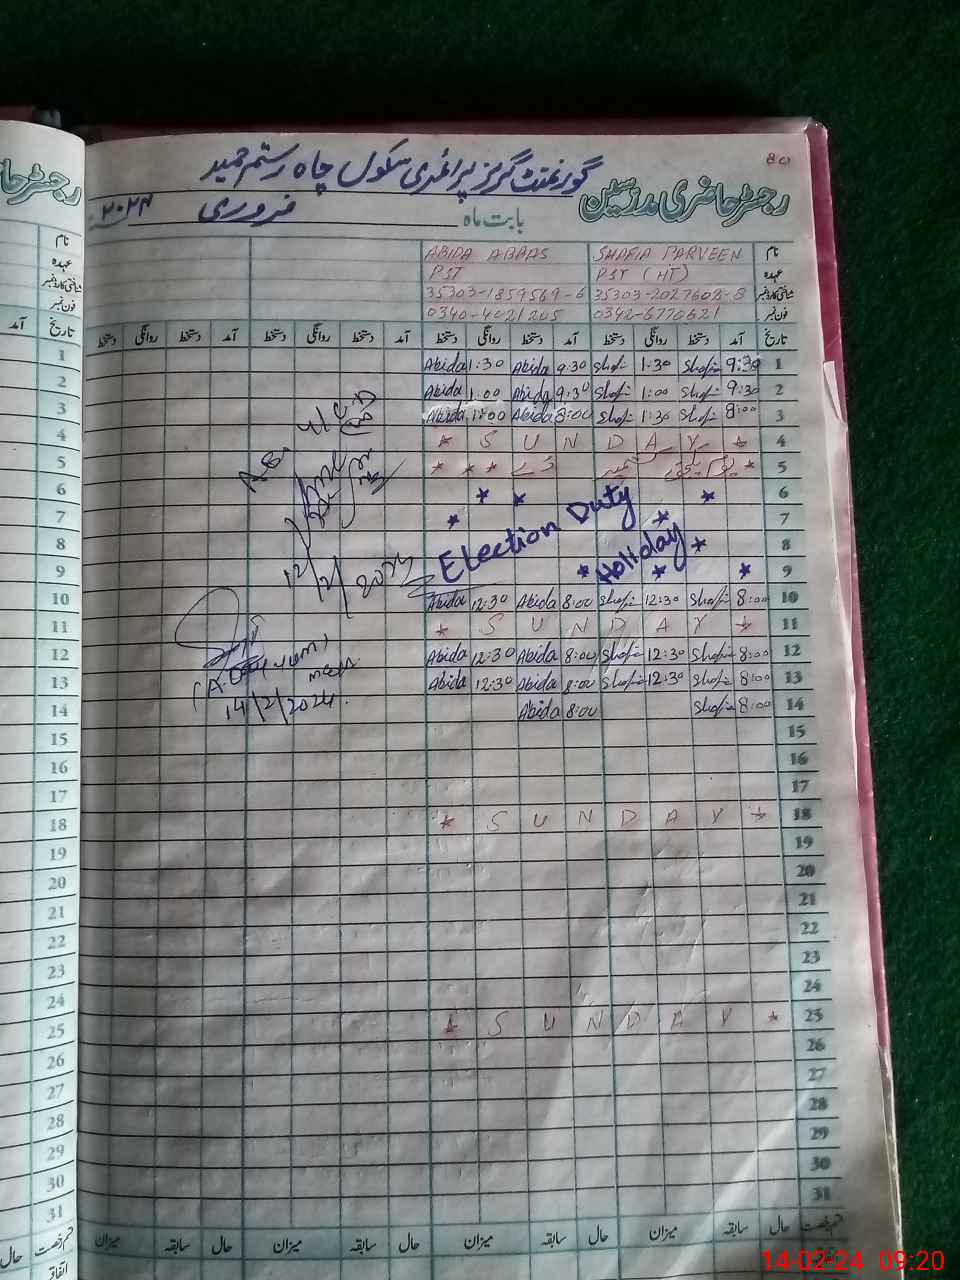 80
گورنمنٹ گرلز پرائمری سکول چاہ رستم حمید
رجسٹر حاضری مدرسین
بابت ماہ فروری ۲۰۲۴
نام SHAFIA PARVEEN ABIDA ABBAS
عہدہ PST (HT) PST
شناختی کارڈ نمبر 35303-2027608-8 35303-1859569-6
فون نمبر 0342-6770621 0340-4021205
تاریخ آمد دستخط روانگی دستخط آمد دستخط روانگی دستخط آمد دستخط روانگی دستخط آمد دستخط روانگی دستخط
1 9:30 Shafia 1:30 Shafi 9:30 Abida 1:30 Abida
2 9:30 Shafi 1:00 Shafi 9:30 Abida 1:00 Abida
3 8:00 Shafi 1:30 Shafi 8:00 Abida 1:00 Abida
4 * S U N D A Y *
5 * یوم یکجہتی کشمیر ڈے * * *
6
7 Election Duty
8 Holiday
9
10 8:00 Shafi 12:30 Shafi 8:00 Abida 12:30 Abida
11 * S U N D A Y *
12 8:00 Shafi 12:30 Shafi 8:00 Abida 12:30 Abida
13 8:00 Shafi 12:30 Shafi 8:00 Abida 12:30 Abida
14 8:00 Shafi 8:00 Abida
15
16
17
18 * S U N D A Y *
19
20
21
22
23
24
25 * S U N D A Y *
26
27
28
29
30
31
قسم رخصت حال سابقہ میزان حال سابقہ میزان حال سابقہ میزان حال سابقہ میزان
12/2/2024
14/2/2024
رجسٹر حا
نام
عہدہ
شناختی کارڈ نمبر
فون نمبر
تاریخ آمد
1
2
3
4
5
6
7
8
9
10
11
12
13
14
15
16
17
18
19
20
21
22
23
24
25
26
27
28
29
30
31
قسم رخصت حال
اتفاقی
14-02-24 09:20